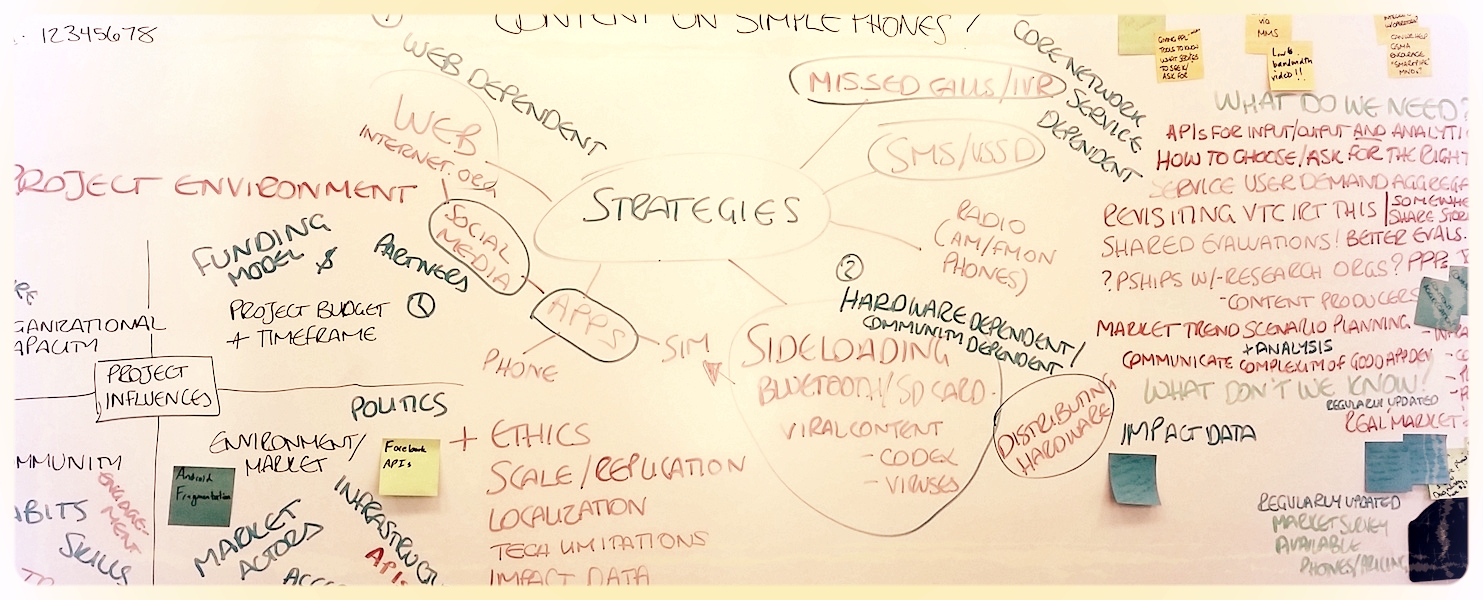 12345678
CONTENT ON SIMPLE PHONES?
①
WEB DEPENDENT
WEB
INTERNET.ORG
PROJECT ENVIRONMENT
FUNDING
MODEL $
PARTNERS
SOCIAL
MEDIA
PROJECT BUDGET
+ TIMEFRAME
GANIZATIONAL
APACITY
PROJECT
INFLUENCES
APPS
PHONE
SIM
STRATEGIES
MISSED CALLS/IVR
SMS/USSD
CORE NETWORK
SERVICE
DEPENDENT
RADIO
(AM/FM ON
PHONES)
②
HARDWARE DEPENDENT/
COMMUNITY DEPENDENT
SIDELOADING
BLUETOOTH/SD CARD
VIRAL CONTENT
- CODEX
- VIRUSES
DISTRIBUTING
HARDWARE
POLITICS
ENVIRONMENT/
MARKET
Android
Fragmentation
Facebook
APIs
MMUNITY
ENGAGE-
MENT
ABITS
SKILLS
MARKET
ACTORS
INFRASTRUCT
APIs
+ ETHICS
SCALE/REPLICATION
LOCALIZATION
TECH LIMITATIONS
IMPACT DATA
GIVING PPL
TOOLS TO KNOW
WHAT SERVICES
TO SEEK/
ASK FOR
VIA
MMS
Low
bandwidth
video!!
CAN WE HELP
GSMA
ENCOURAGE
WHAT DO WE NEED?
APIS FOR INPUT/OUTPUT AND ANALYTI
HOW TO CHOOSE/ASK FOR THE RIGHT
SERVICE USER DEMAND AGGREGA
REVISITING VTC IRT THIS
SOMEWHE
SHARE STOR
SHARED EVALUATIONS! BETTER EVALS.
? PSHIPS W/-RESEARCH ORGS? PPPs
-CONTENT PRODUCERS
MARKET TREND SCENARIO PLANNING
+ANALYSIS
COMMUNICATE COMPLEXITY OF GOOD APP DEV
WHAT DON'T WE KNOW?
REGULARLY UPDATED
REAL MARKET
IMPACT DATA
REGULARLY UPDATED
MARKET SURVEY
AVAILABLE
PHONES/PRICING